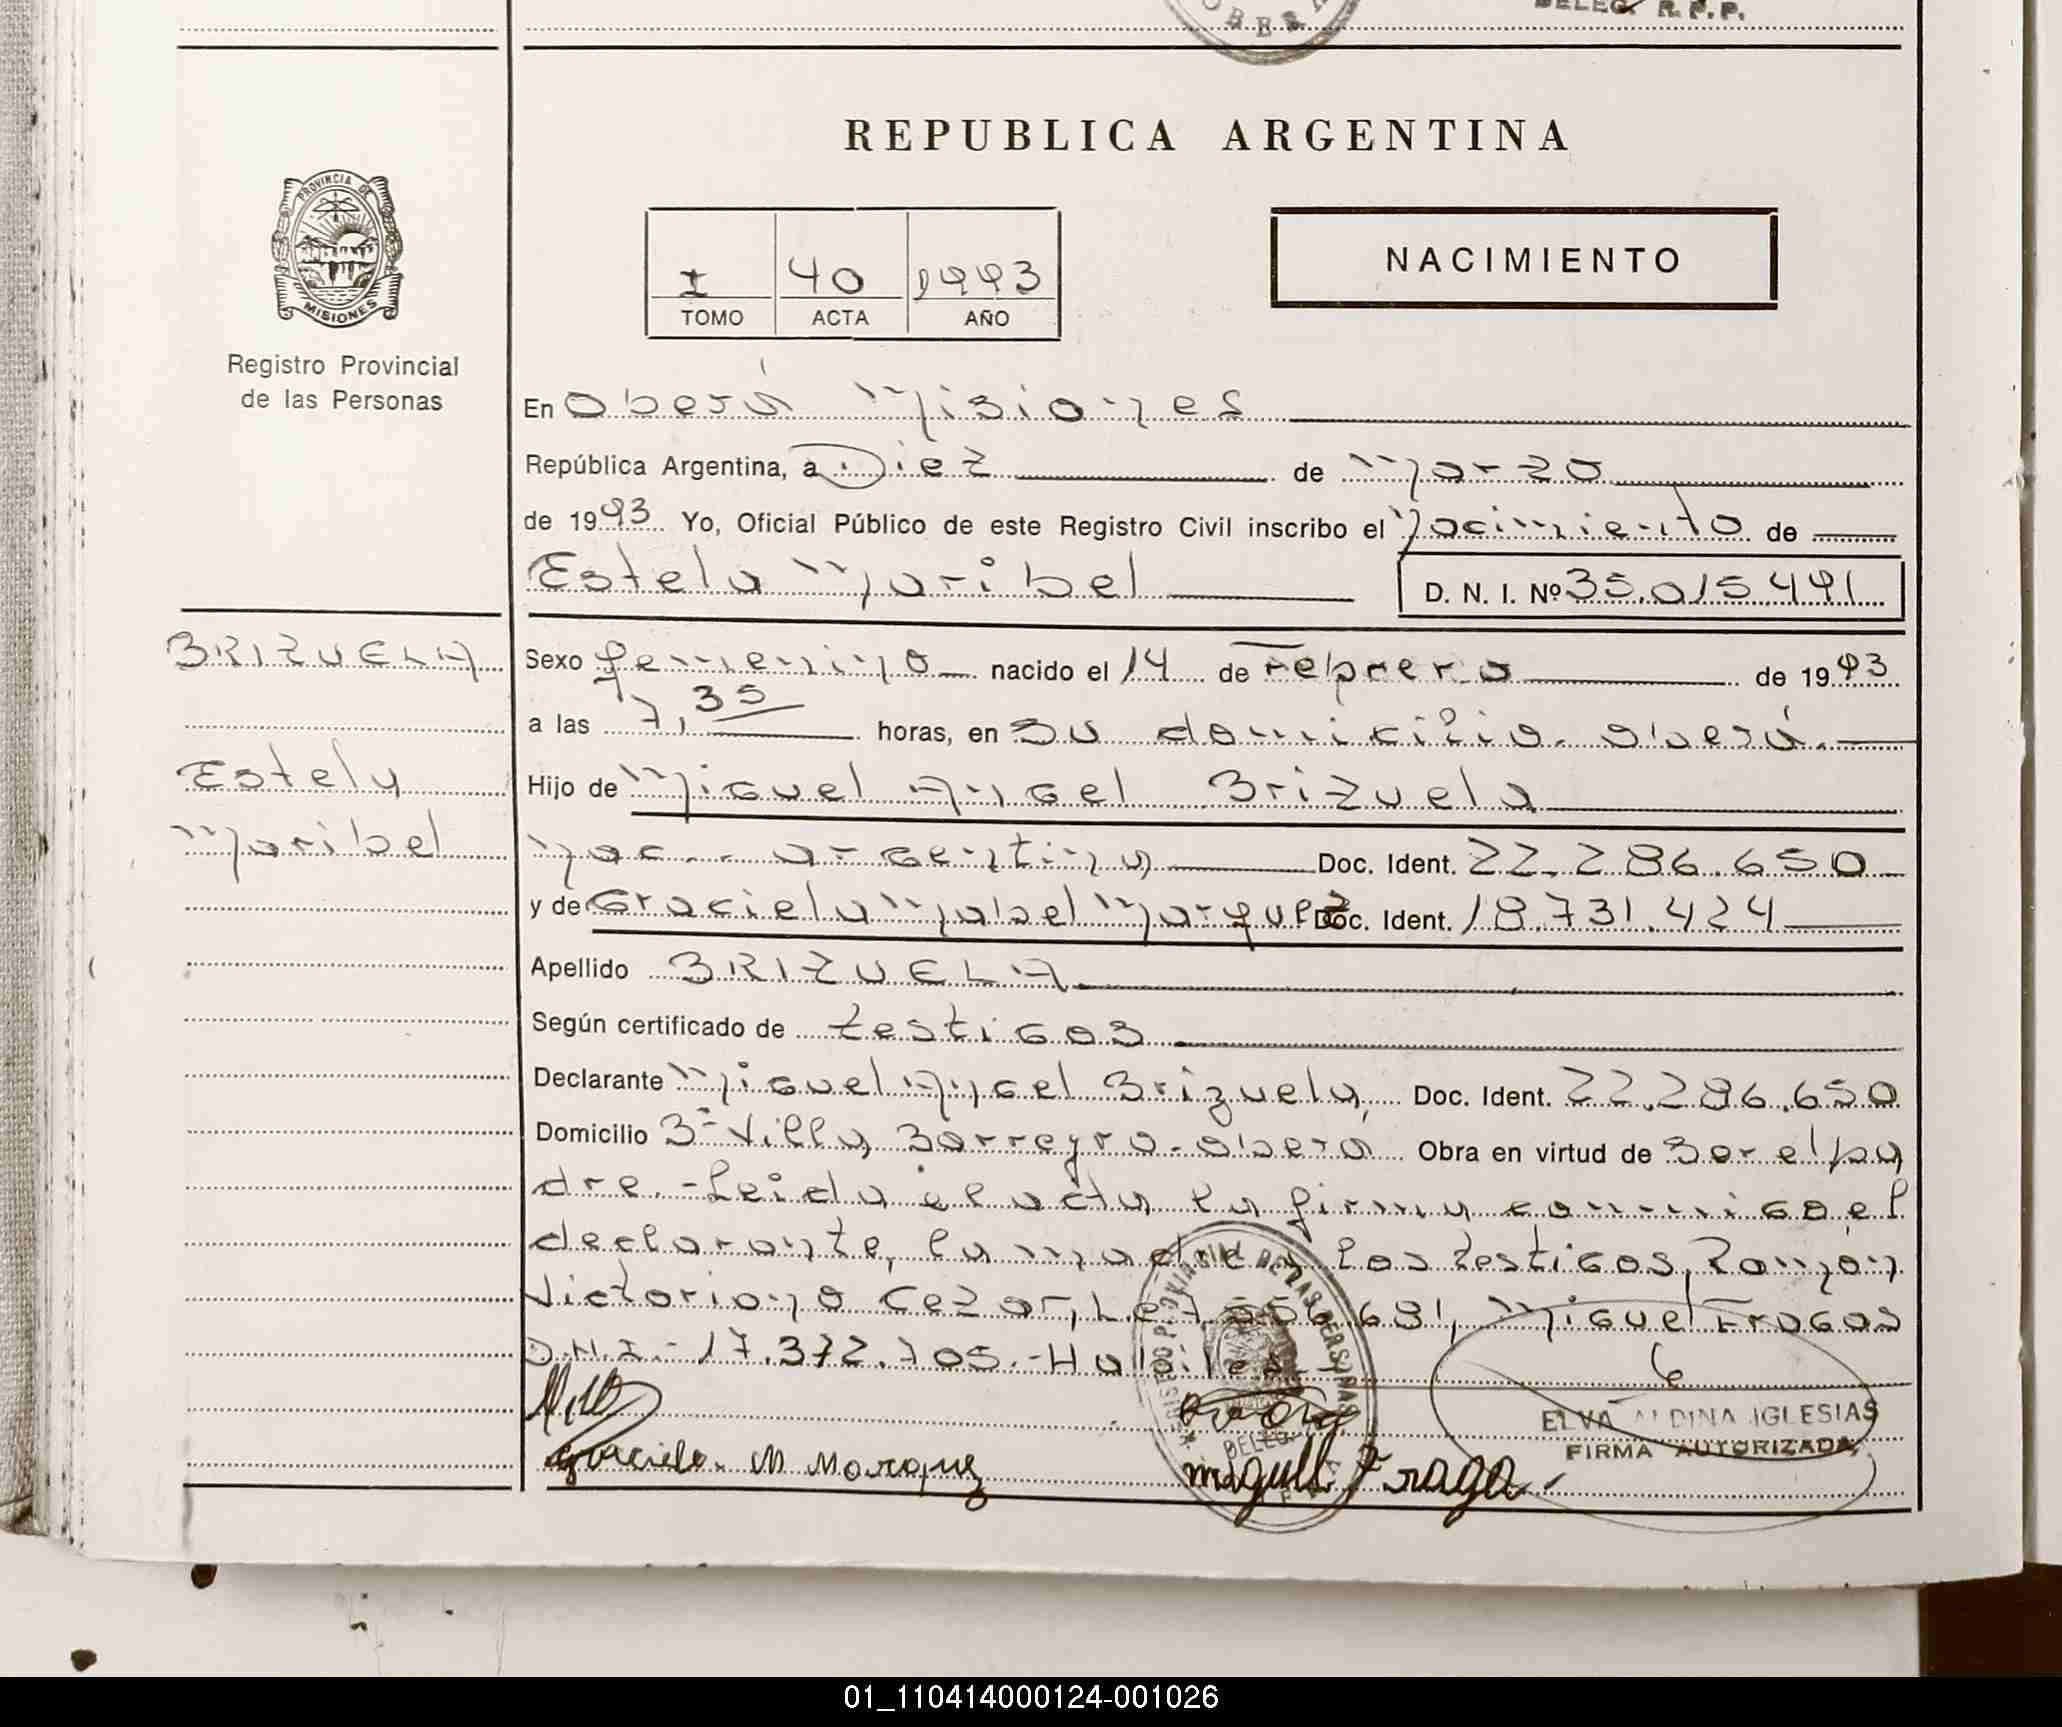 DELEG. R.P.P.
OBERA
REPUBLICA ARGENTINA
PROVINCIA DE
MISIONES
Registro Provincial
de las Personas
I 40 1993
TOMO ACTA AÑO
NACIMIENTO
En Oberá Misiones
República Argentina, a Diez de Marzo
de 1993 Yo, Oficial Público de este Registro Civil inscribo el Nacimiento de
Estela Maribel D. N. I. Nº 35.015.491
BRIZUELA
Estela
Maribel
Sexo femenino nacido el 14 de Febrero de 1993
a las 7,35 horas, en su domicilio. oberá.
Hijo de Miguel Angel Brizuela
Nac. argentina Doc. Ident. 22.286.650
y de Graciela Mabel Marquez Doc. Ident. 18.731.424
Apellido BRIZUELA
Según certificado de testigos
Declarante Miguel Angel Brizuela, Doc. Ident. 22.286.650
Domicilio Villa Barreyro. oberá Obra en virtud de Ser el pa
dre.- Leida el acta la firma conmigo el
declarante, la madre y los testigos, Ramón
Victoriano Cezar, L.E. 681, Miguel Fragas
D.N.I.- 17.372.705.-
Graciela. M Marquez
miguel Fraga
ELVA ALDINA IGLESIAS
FIRMA AUTORIZADA
01_110414000124-001026